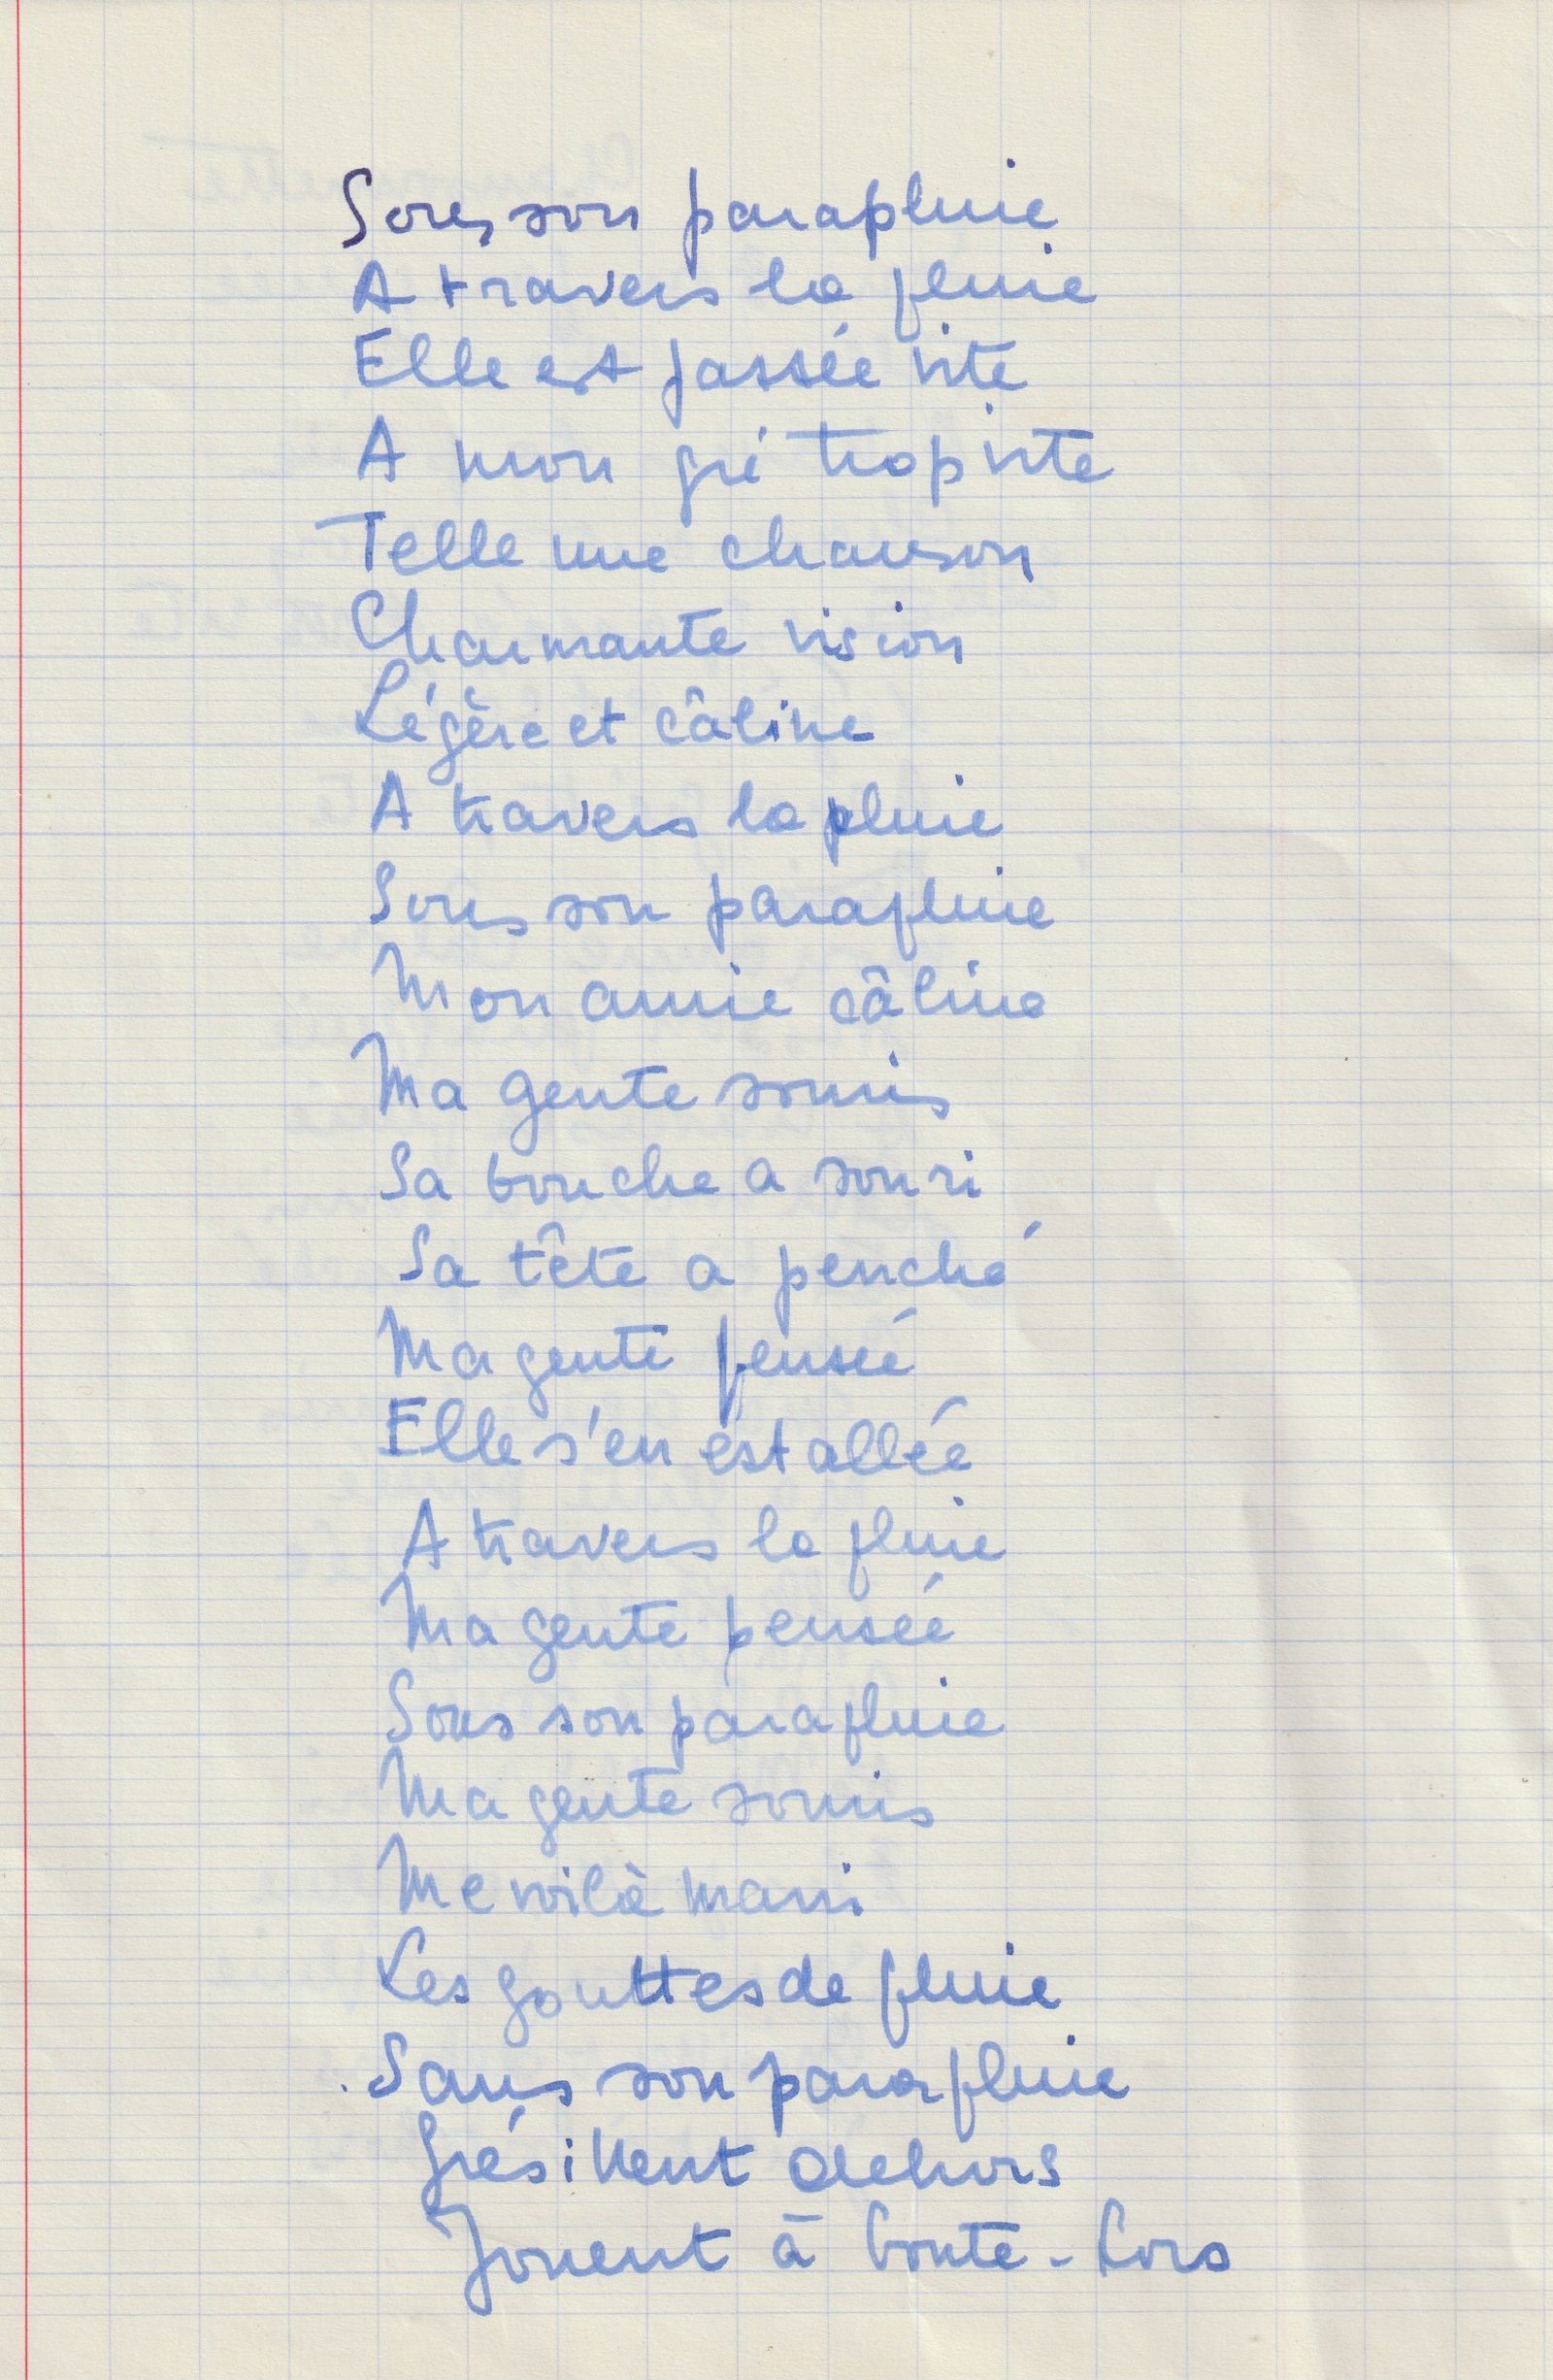 Sous son parapluie
A travers la pluie
Elle est passée vite
A mon gré trop vite
Telle une chanson
Charmante vision
Légère et câline
A travers la pluie
Sous son parapluie
Mon amie câline
Ma gente souris
Sa bouche a souri
Sa tête a penché
Ma gente pensée
Elle s'en est allée
A travers la pluie
Ma gente pensée
Sous son parapluie
Ma gente souris
Me voilà marri
Les gouttes de pluie
Sans son parapluie
Grésillent dehors
Jouent à boute-hors